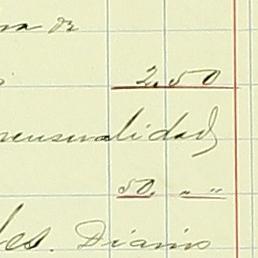 2.50
mensualidad
50. " "
les. Diario